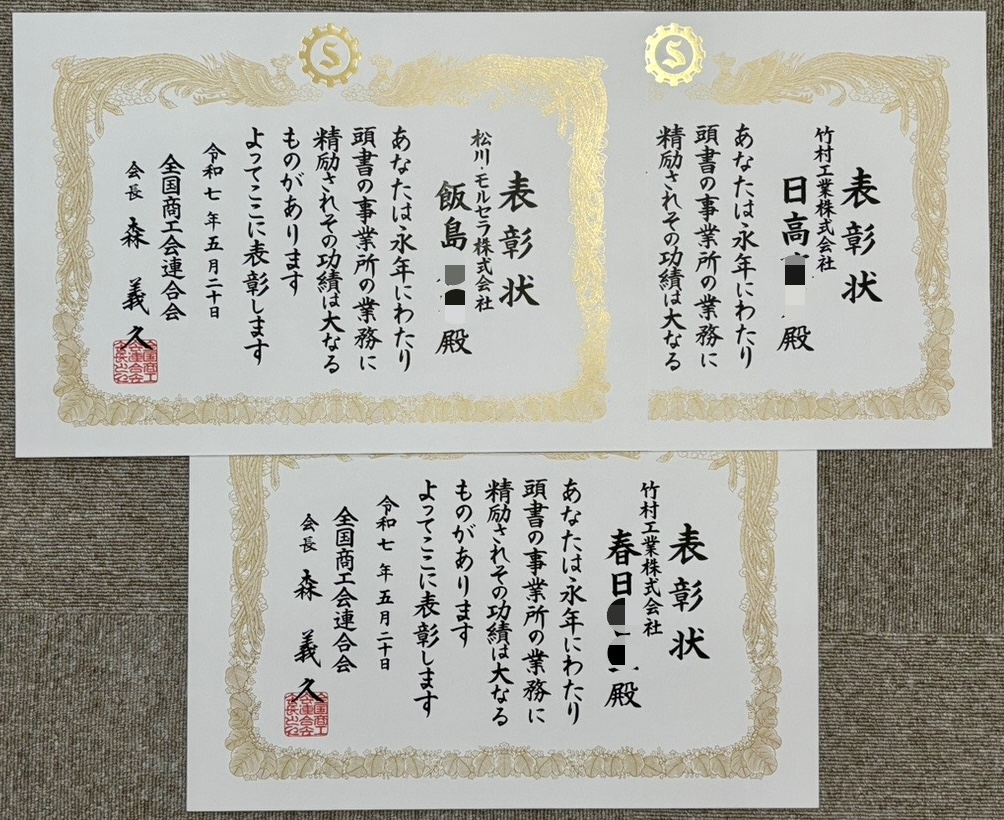 表彰状
松川・モルセラ株式会社
飯島 殿
あなたは永年にわたり
頭書の事業所の業務に
精励されその功績は大なる
ものがあります
よってここに表彰します
令和七年五月二十日
全国商工会連合会
会長 森 義久
表彰状
竹村工業株式会社
日高 殿
あなたは永年にわたり
頭書の事業所の業務に
精励されその功績は大なる
表彰状
竹村工業株式会社
春日 殿
あなたは永年にわたり
頭書の事業所の業務に
精励されその功績は大なる
ものがあります
よってここに表彰します
令和七年五月二十日
全国商工会連合会
会長 森 義久